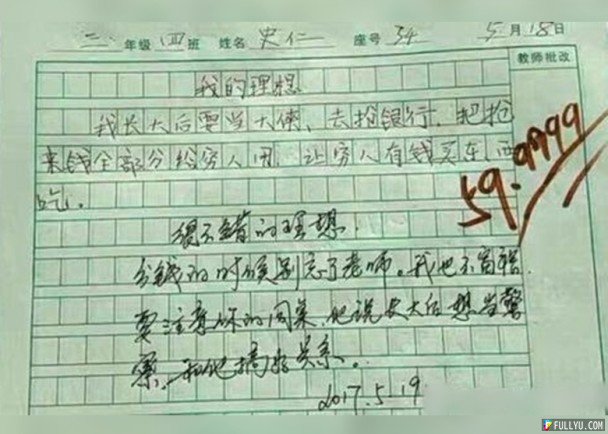 三 年级 四 班 姓名 史仁 座号 34 5月18日
教师批改
我的理想
我长大后要当大侠、去抢银行、把抢
来钱全部分给穷人用、让穷人有钱买东西
吃.
59.9999
很不错的理想.
分钱的时候别忘了老师。我也不富裕.
要注意你的同桌,他说长大后想当警
察、和他搞好关系。
2017.5.19
FULLYU.COM